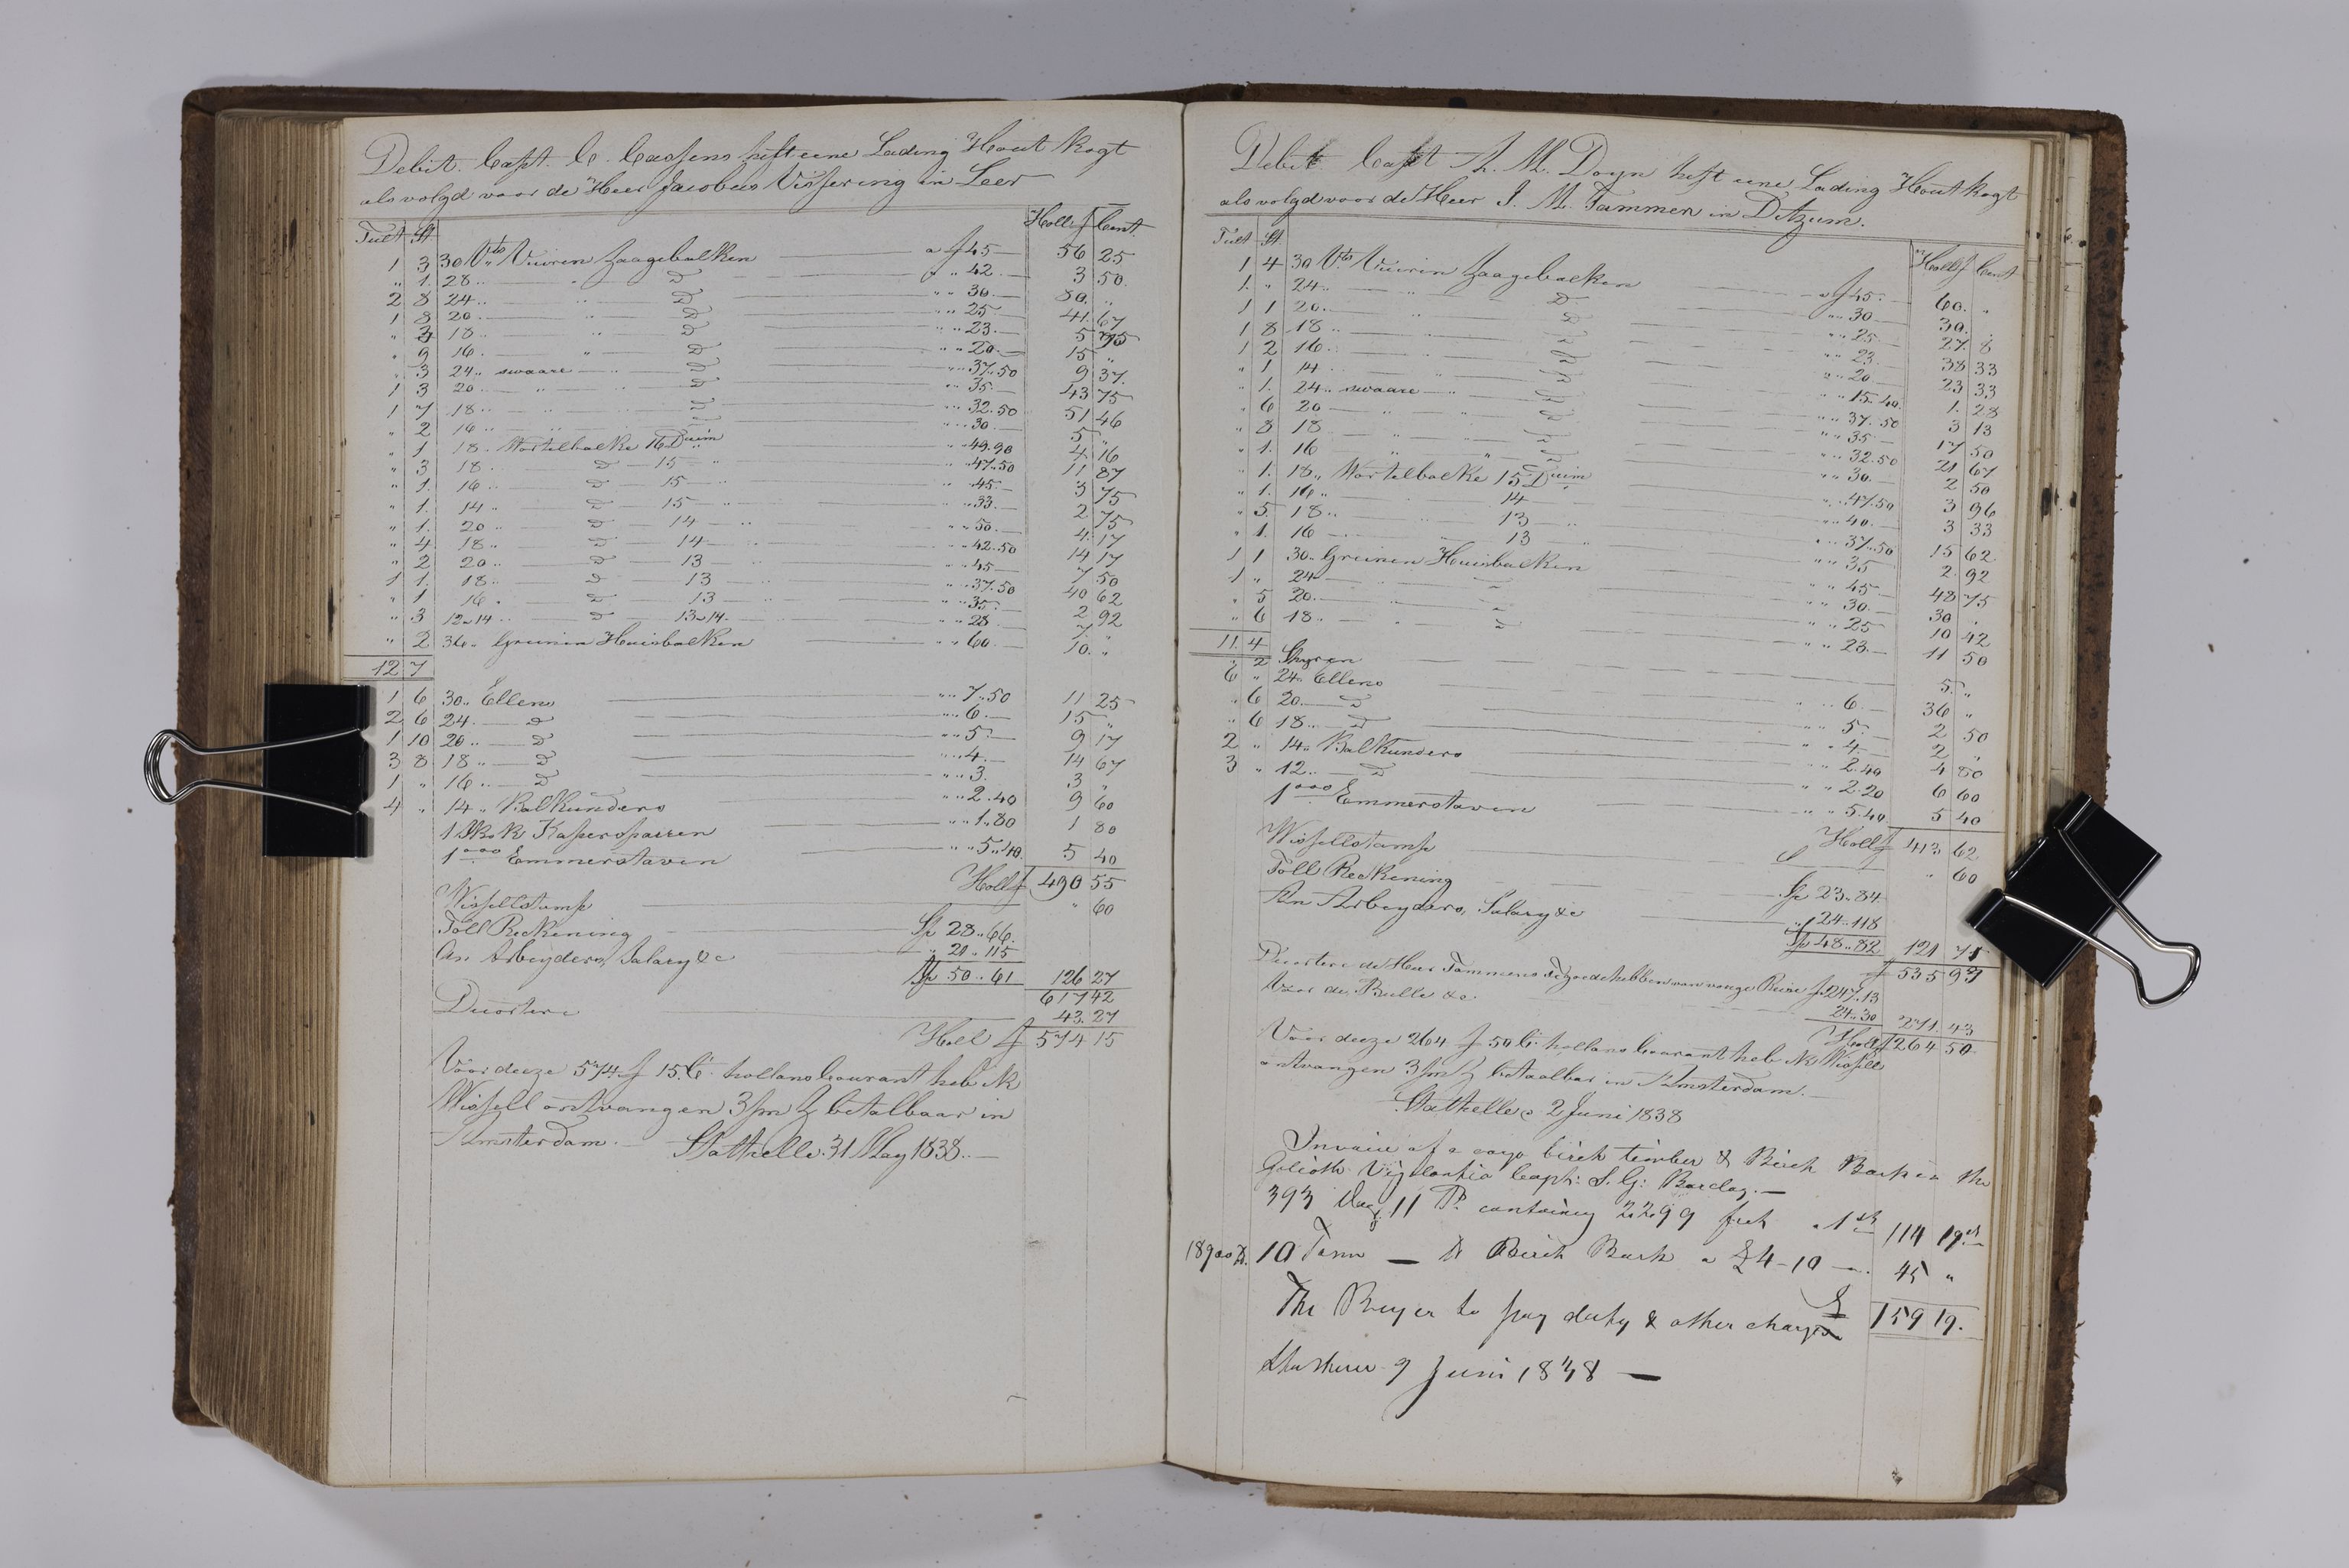 Debit. Capt. C. Cassens heft eene Lading Hout kogt
als volgd voor de Heer Jacobus Vissering in Leer
Tult St Holl f Cent.
1 3 30 Vts Vuiren Zaagebalken a f 45 56 25
" 1. 28 " " D " " 42 3 50.
2 8 24 " " D " " 30. 80. "
1 8 20 " " D " " 25 41. 67
" 3 18 " " D " " 23. 5 75
" 9 16 " " D " " 20. 15 "
" 3 24 " swaare D " " 37.50 9 37.
1 3 20 " " D " " 35 43 75
1 7 18 " " D " " 32.50 51 46
" 2 16 " " D " " 30. 5 "
" 1 18. Wortelbalke 16 Duim " " 49.90 4 16
" 3 18 " D 15 " " " 47.50 11 87
" 1. 16 " D 15 " " " 45. 3 75
" 1. 14 " D 15 " " " 33. 2 75
" 1. 20 " D 14 " " " 50. 4. 17
" 4 18 " D 14 " " " 42.50 14 17
" 2 20 " D 13 " " " 45 7 50
1 1. 18 " D 13 " " " 37.50 40 62
" 1 16 " D 13 " " " 35. 2 92
" 3 12 a 14 D 13 a 14. " " 28 7. "
" 2 36 " Greinen Huisbalken " " 60. 10. "
12 7
1 6 30 " Ellens " " 7.50 11 25
2 6 24. D " " 6. 15 "
1 10 20 " D " " 5. 9 17
3 8 18 " D " " 4. 14 67
1 " 16 " D " " 3. 3 "
4 " 14 " Balkunders " " 2.40 9 60
1 Skok Kapersparren " " 1.80 1 80
1000 Emmerstaven " " 5.40. 5 40
Holl f 490 55
Wissellstemp " 60
Toll Reckening Sp 28.. 66.
An Arbeyders, Salary &c " 20.. 115
Sp 50.. 61 126 27
617 42
Duortere 43. 27
Holl f 574 15
Voor deeze 574 f 15 Ct. hollans Courant heb ik
Wissell ontvangen 3 m betalbaar in
Amsterdam. Stathelle. 31 May 1838.
Debit Capt A. M. Doyn heft eene Lading Hout kogt
als volgd voor de Heer J. M. Tammen in Ditzum.
Tult St. Holl f Cent
1 4 30 Vts Vuiren Zaagebalken a f 45. 60. "
1. " 24 " " D " " 30 30. "
1 1 20. " D " " 25 27. 8
1 8 18 " " D " " 23. 38 33
1 2 16. " D " " 20 23 33
" 1 14 " " D " " 15.40. 1. 28
" 1. 24 " swaare D " " 37.50 3 13
" 6 20 " " D " " 35 17 50
" 8 18 " " D " " 32.50 21 67
" 1. 16 " " D " " 30. 2 50
" 1. 18 " Wortelbalke 15 Duim " " 47.50 3 96
" 1. 16 " 14 " " 40. 3 33
" 5. 18 " 13 " " 37.50 15 62
" 1. 16 13 " " 35 2. 92
1 1 30 " Greinen Huisbalken " " 45 48 75
1 " 24 " " 30. 30 "
" 5 20. " " 25 10 42
" 6 18 " " " 23. 11 50
11. 4
" 2 Spyren 5. "
6 " 24 " Ellens " " 6. 36 "
" 6 20. D " " 5. 2 50
" 6 18 " D " " 4 2 "
2 " 14 " Balkunders " " 2.40 4 80
3 " 12 " D " " 2.20 6 60
1000 Emmerstaven " " 5.40 5 40
Holl f 413 62
Wissellstemp " 60
Toll Reckening Sp 23.. 84
An Arbeyders, Salary &c " 24.. 118
Sp 48.. 82 121 75
f 535 93
Duortere de Heer Tammens Tegoedehebben van vorige Reise f 247.13
Voor de Bulle &c. 24.. 30 271. 43
Holl f 264 50
Voor deeze 264 f 50 Ct. hollans Courant heb ik Wissell
ontvangen 3 m betaalbar in Amsterdam.
Stathelle 2 Juni 1838
Invoice of a cargo birch timber & Birch Bark in the
Golioth Vigelantia Capt: S. G: Barclay.
393 11 Ps containing 2299 feet a 1 sh 114 19 sh
18900 10 Tonn Birch Bark a £ 4-10 45 "
The Buyer to pay duty & other charges £ 159 19.
9 Juni 1838